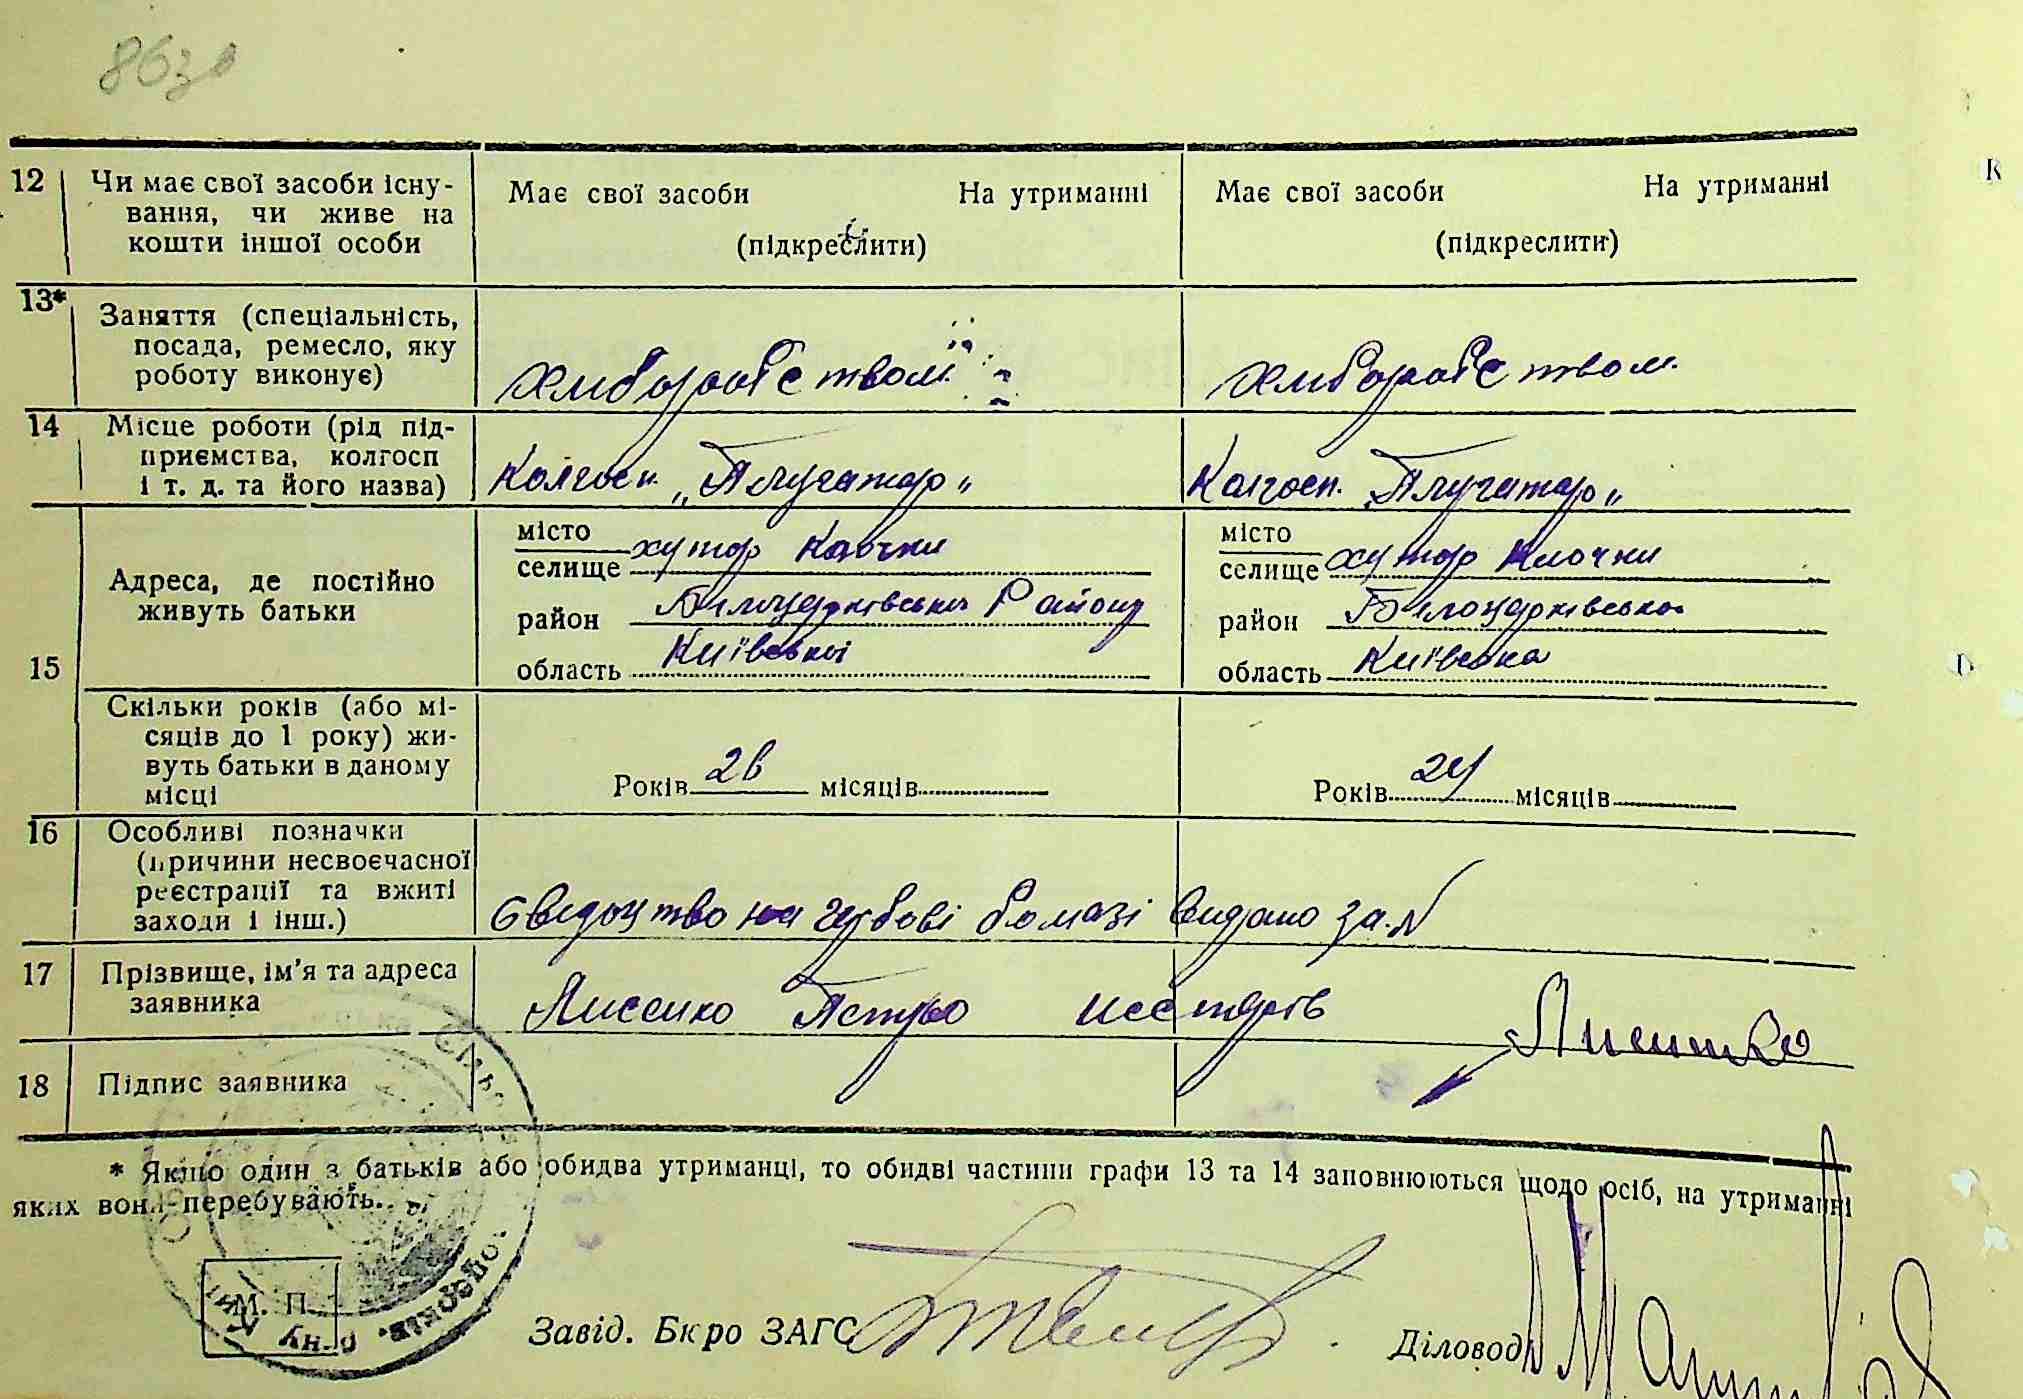 863
12 Чи має свої засоби існу- Має свої засоби На утриманні Має свої засоби На утриманні
вання, чи живе на
кошти іншої особи (підкреслити) (підкреслити)
13* Заняття (спеціальність,
посада, ремесло, яку
роботу виконує) хлиборобством хлиборобством
14 Місце роботи (рід під-
приємства, колгосп
і т. д. та його назва) Колгосп. „Плугатар" Колгосп. „Плугатар"
місто місто
селище хутор Клочки селище хутор Клочки
Адреса, де постійно
живуть батьки район Білоцерківського Району район Білоцерківська
15 область Київської область Київська
Скільки років (або мі-
сяців до 1 року) жи-
вуть батьки в даному
місці Років місяців Років 24 місяців
16 Особливі позначки
(причини несвоєчасної
реєстрації та вжиті
заходи і інш.) Свидоцтво на гербові бомазі видано за №
17 Прізвище, ім'я та адреса
заявника Лисенко Петро Несторів
Лисенко
18 Підпис заявника
* Якщо один з батьків або обидва утриманці, то обидві частини графи 13 та 14 заповнюються щодо осіб, на утриманні
яких вони перебувають.
М. П.
Завід. Бюро ЗАГС Діловод